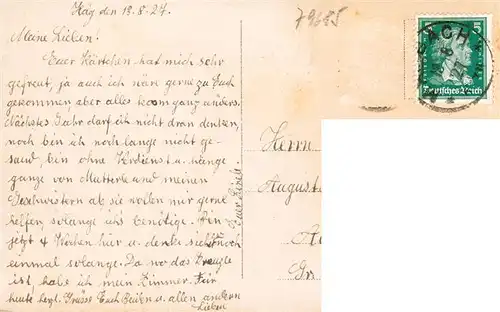 Häg den 18.8.27.
79685
Meine Lieben!
Euer Kärtchen hat mich sehr
gefreut, ja auch ich wäre gerne zu Euch
gekommen aber alles kam ganz anders.
Nächstes Jahr darf ich nicht dran denken,
noch bin ich noch lange nicht ge-
sund bin ohne Verdienst u. hänge
ganze von Mutterle und meinen
Geschwistern ab sie wollen mir gerne
helfen, solange ichs benötige. Bin
jetzt 4 Wochen hier u. denke sicher noch
einmal solange. Da wo das Kreuzle
ist habe ich mein Zimmer. Für
heute lebt. Grüsse Euch Beiden u. allen andern
Lieben
Deutsches Reich
Herrn
August